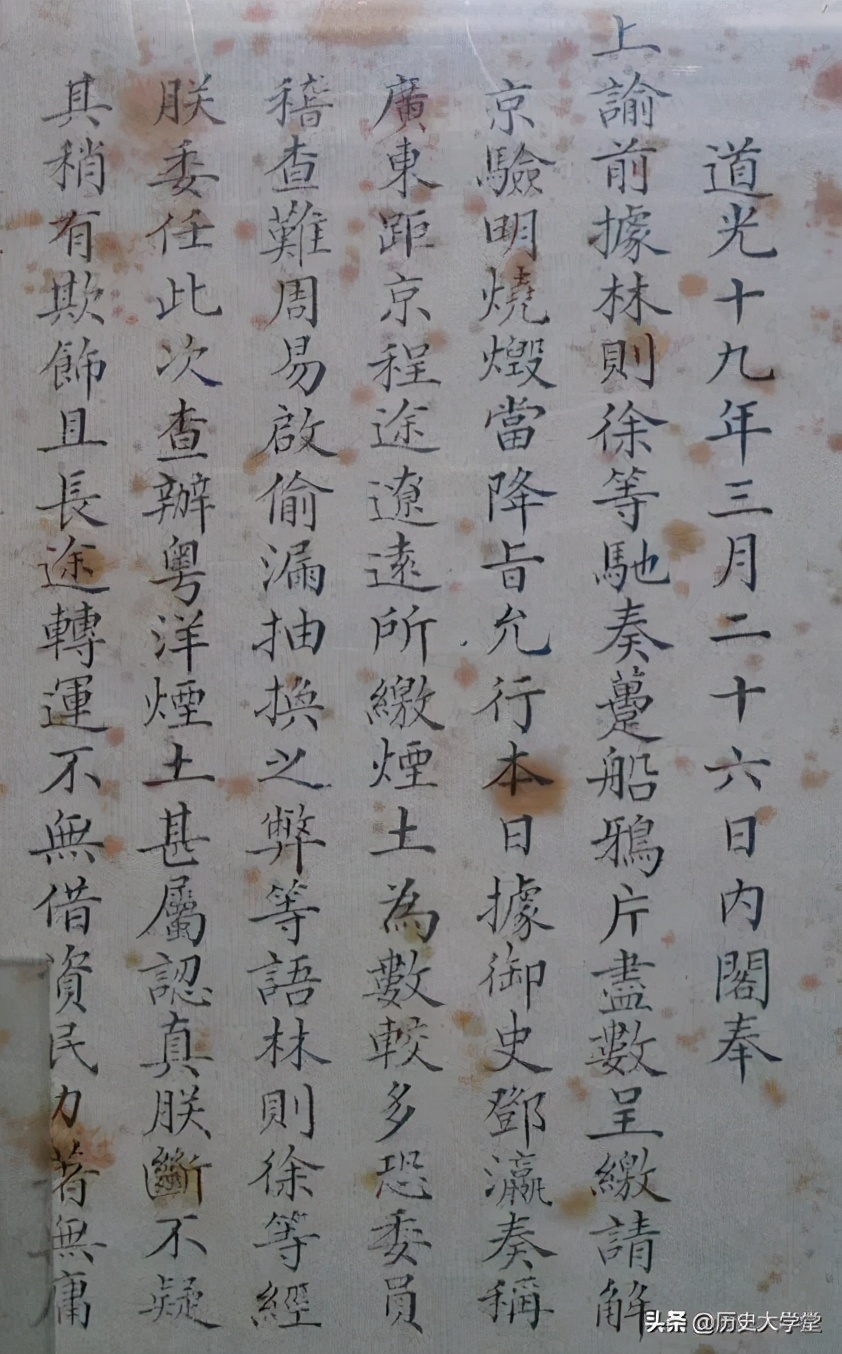 道光十九年三月二十六日內閣奉
上諭前據林則徐等馳奏躉船鴉片盡數呈繳請解
京驗明燒燬當降旨允行本日據御史鄧瀛奏稱
廣東距京程途遼遠所繳煙土為數較多恐委員
稽查難周易啟偷漏抽換之弊等語林則徐等經
朕委任此次查辦粵洋煙土甚屬認真朕斷不疑
其稍有欺飾且長途轉運不無借資民力著無庸
头条 @历史大学堂